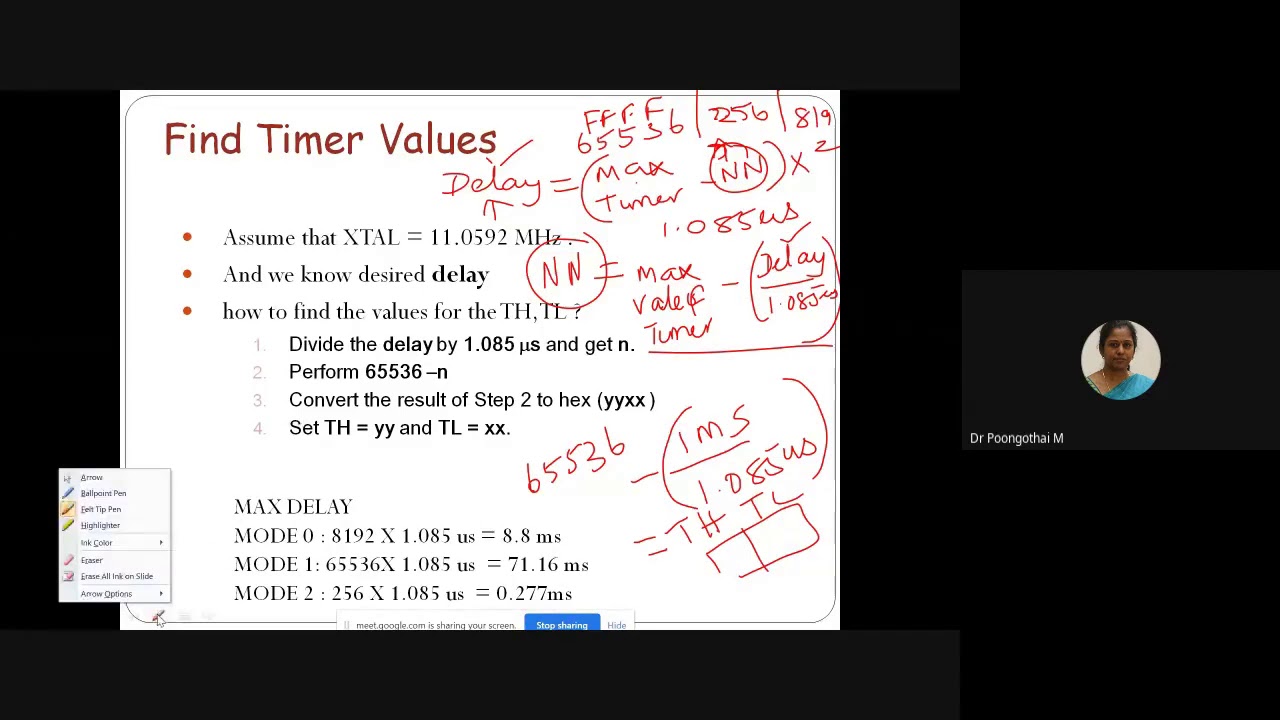 Find Timer Values
FFFF
65536 | 256 | 819
2
Delay = (Max Timer - NN) X
1.085us
• Assume that XTAL = 11.0592 MHz .
• And we know desired delay
• how to find the values for the TH,TL ?
NN = max valeof Timer - (Delay / 1.085us)
1. Divide the delay by 1.085 μs and get n.
2. Perform 65536 –n
3. Convert the result of Step 2 to hex (yyxx )
4. Set TH = yy and TL = xx.
65536 - (1ms / 1.085us)
= TH TL
Arrow
Ballpoint Pen
Felt Tip Pen
Highlighter
Ink Color
Eraser
Erase All Ink on Slide
Arrow Options
MAX DELAY
MODE 0 : 8192 X 1.085 us = 8.8 ms
MODE 1: 65536X 1.085 us = 71.16 ms
MODE 2 : 256 X 1.085 us = 0.277ms
meet.google.com is sharing your screen.
Stop sharing
Hide
Dr Poongothai M